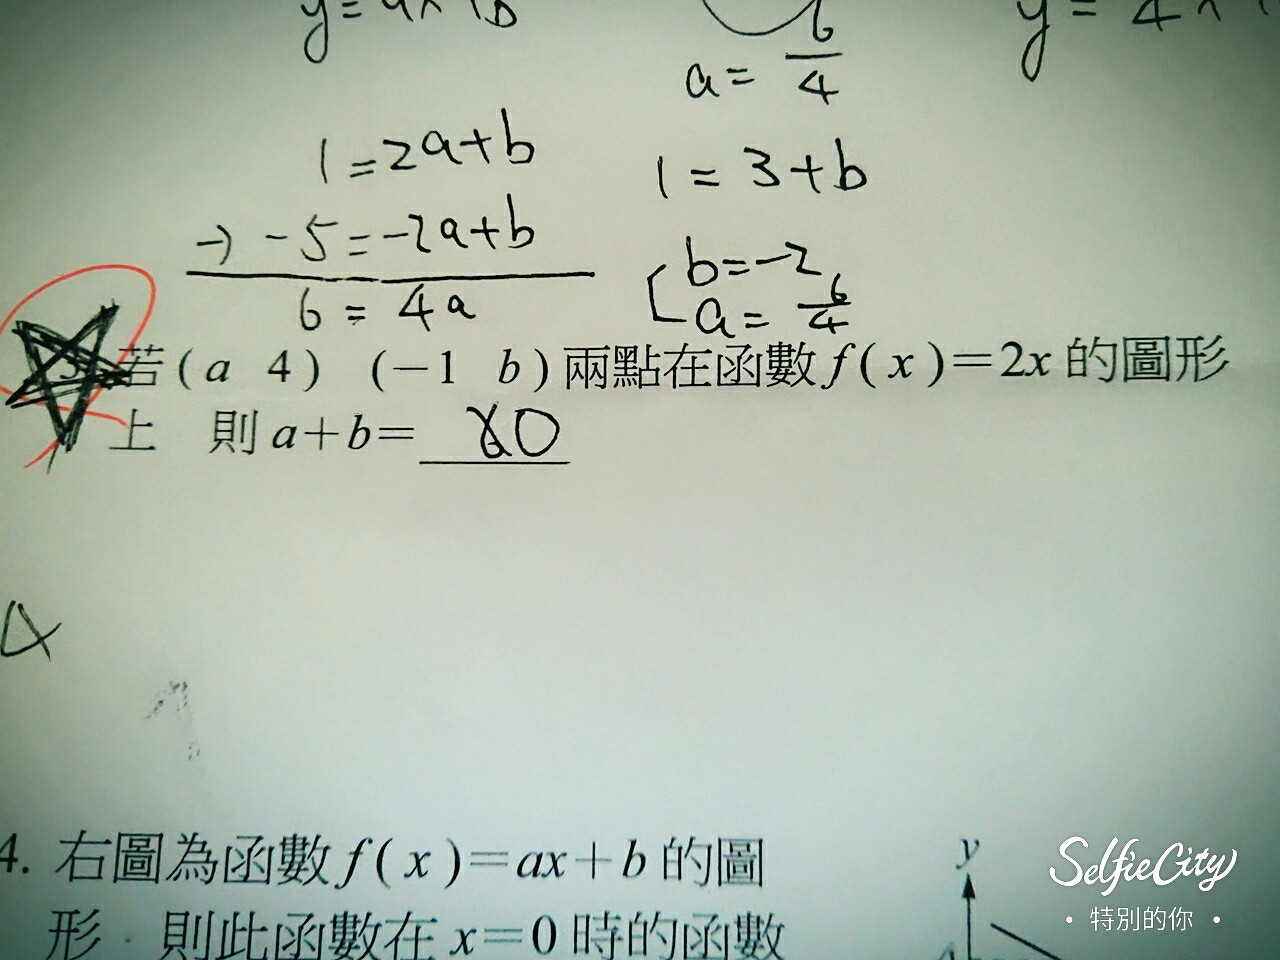 y=ax+b
6
y=4x
a= /4
1=2a+b
1=3+b
→ -5=-2a+b
b=-2
6=4a
a=6/4
3. 若(a 4) (-1 b)兩點在函數f(x)=2x的圖形
上 則a+b= 0
4. 右圖為函數f(x)=ax+b的圖
形 則此函數在x=0時的函數
y
4
SelfieCity
· 特別的你 ·